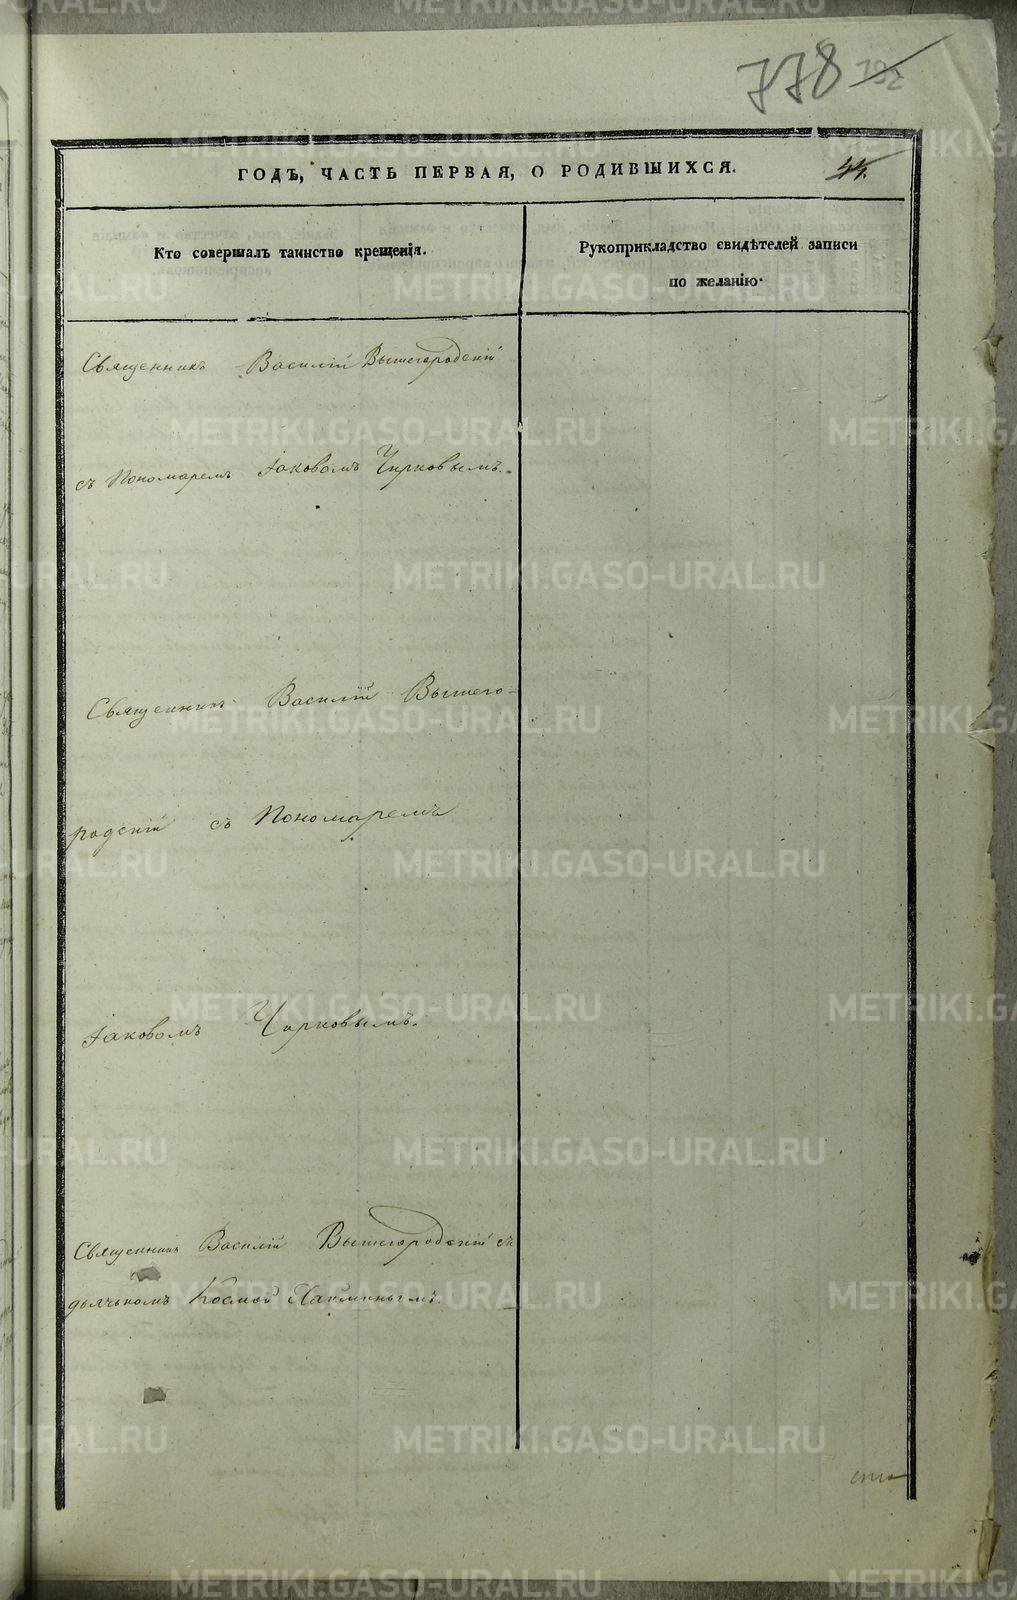 778 192
ГОДЪ, ЧАСТЬ ПЕРВАЯ, О РОДИВШИХСЯ.
44.
Кто совершалъ таинство крещенія.
Рукоприкладство свидѣтелей записи
по желанію.
Священникъ Василій Вышегородскій
съ Пономаремъ Іаковомъ Чирковымъ.
Священникъ Василій Вышего-
родскій съ Пономаремъ
Іаковомъ Чирковымъ.
Священникъ Василій Вышегородскій съ
дьячькомъ Космой
METRIKI.GASO-URAL.RU